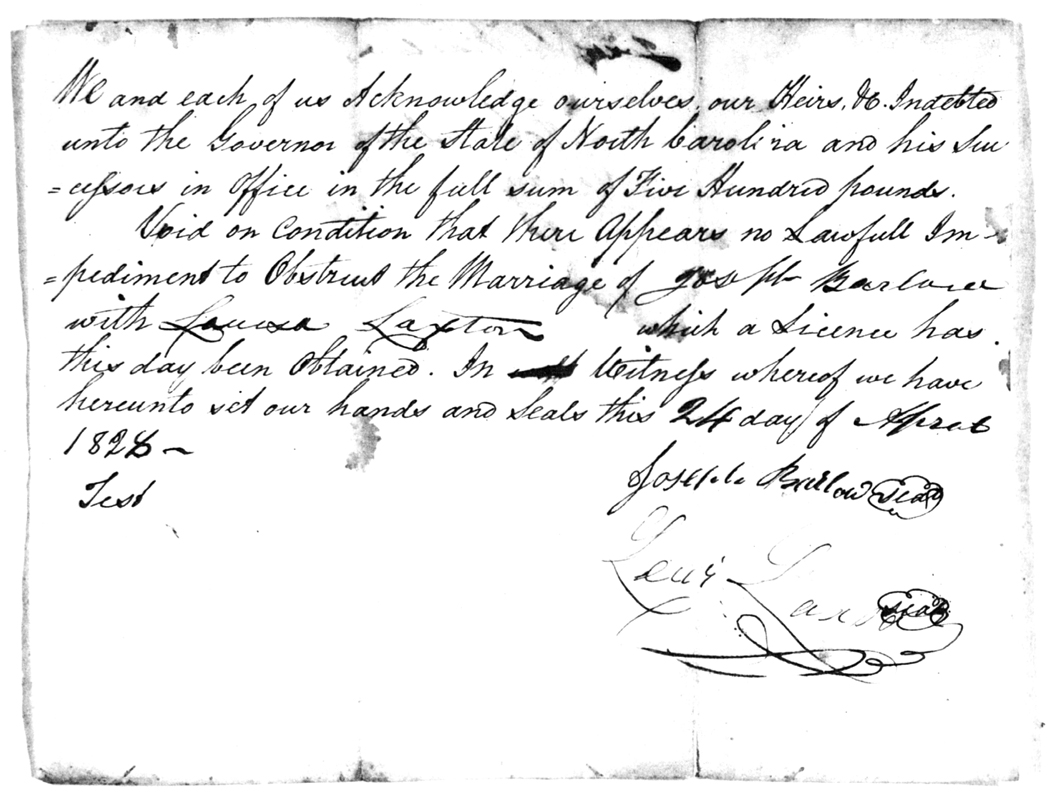 We and each of us Acknowledge ourselves, our Heirs, &c. Indebted
unto the Governor of the State of North Carolina and his Suc
=cessors in Office in the full sum of Five Hundred pounds.
Void on Condition that there Appears no Lawfull Im-
=pediment to Obstruct the Marriage of Joseph Barlow
with Louisa Laxton which a Licence has
this day been Obtained. In Witness whereof we have
hereunto set our hands and Seals this 24 day of Aprel
1828 ~
Test
Joseph Barlow seal
Levi Laxton seal